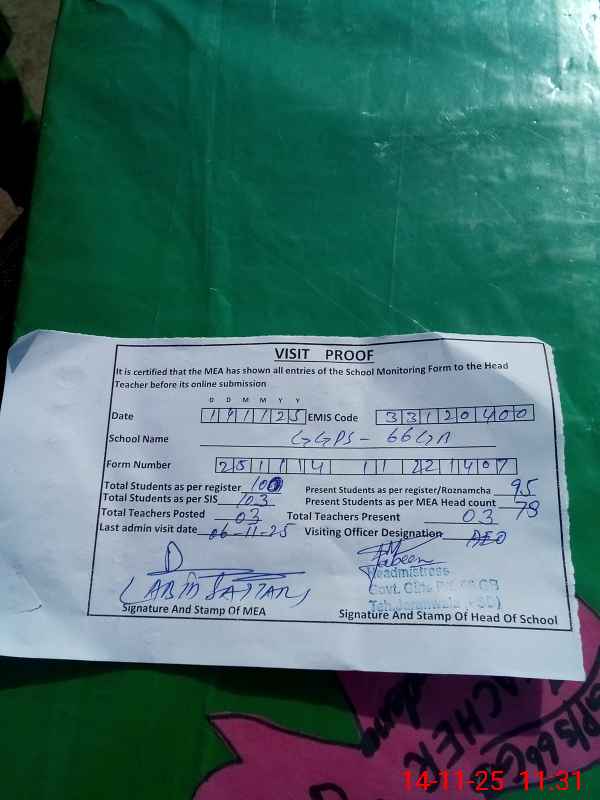 VISIT PROOF
It is certified that the MEA has shown all entries of the School Monitoring Form to the Head
Teacher before its online submission
D D M M Y Y
Date 141125 EMIS Code 33120400
School Name GGPS - 66GB
Form Number 251114 11 221407
Total Students as per register 100 Present Students as per register/Roznamcha 95
Total Students as per SIS 103 Present Students as per MEA Head count 78
Total Teachers Posted 03 Total Teachers Present 03
Last admin visit date 06-11-25 Visiting Officer Designation AEO
Signature And Stamp Of MEA
Headmistress
Govt. Girls 66 GB
Signature And Stamp Of Head Of School
TEACHER
14-11-25 11:31